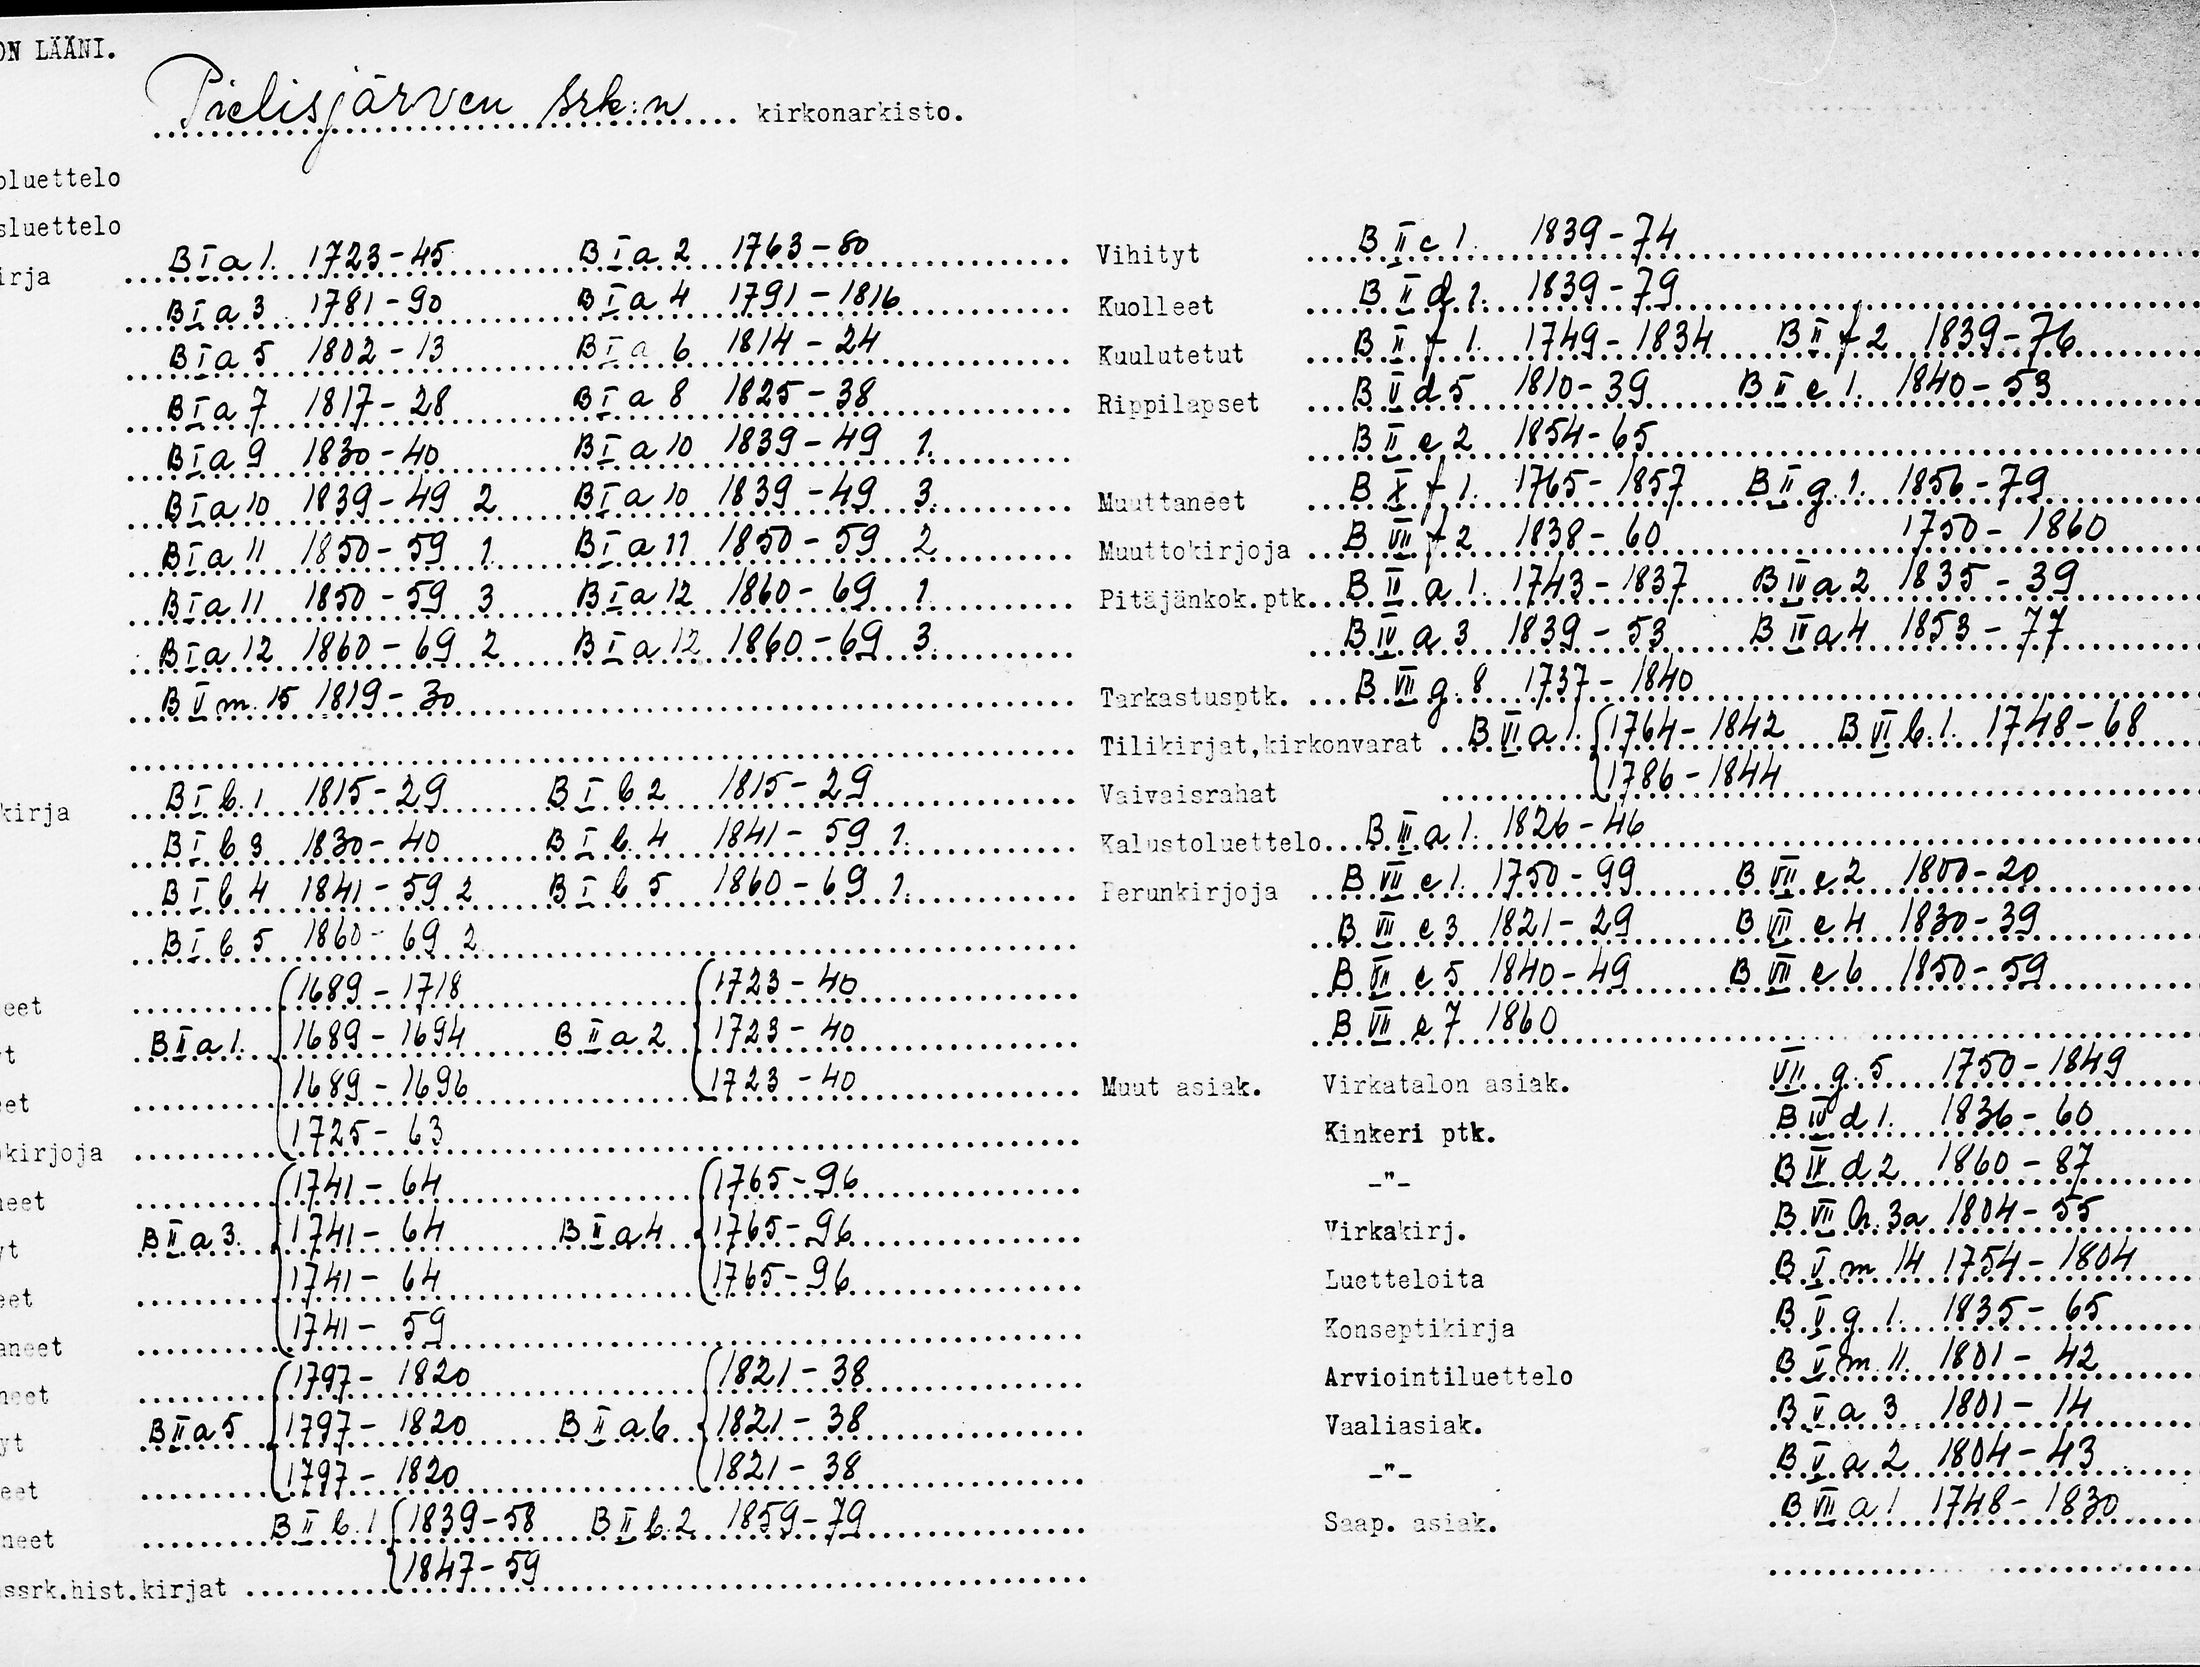 ON LÄÄNI.
Pielisjärven srk:n kirkonarkisto.
oluettelo
sluettelo
irja BIa1. 1723-45 BIa2 1763-80
BIa3 1781-90 BIa4 1791-1816
BIa5 1802-13 BIa6 1814-24
BIa7 1817-28 BIa8 1825-38
BIa9 1830-40 BIa10 1839-49 1.
BIa10 1839-49 2 BIa10 1839-49 3.
BIa11 1850-59 1. BIa11 1850-59 2
BIa11 1850-59 3 BIa12 1860-69 1.
BIa12 1860-69 2 BIa12 1860-69 3.
BVm.15 1819-30
kirja BIb.1 1815-29 BIb2 1815-29
BIb3 1830-40 BIb.4 1841-59 1.
BIb4 1841-59 2 BIb5 1860-69 1.
BIb5 1860-69 2
eet 1689-1718 1723-40
t BIIa1. 1689-1694 BIIa2 1723-40
et 1689-1696 1723-40
kirjoja 1725-63
neet 1741-64 1765-96
yt BIIa3. 1741-64 BIIa4 1765-96
eet 1741-64 1765-96
aneet 1741-59
neet 1797-1820 1821-38
yt BIIa5 1797-1820 BIIa6 1821-38
eet 1797-1820 1821-38
neet BIIb.1 1839-58 BIIb.2 1859-79
ssrk.hist.kirjat 1847-59
Vihityt BIIc1. 1839-74
Kuolleet BIId1. 1839-79
Kuulutetut BIIf1. 1749-1834 BIIf2 1839-76
Rippilapset BVd5 1810-39 BIIe1. 1840-53
BIIe2 1854-65
Muuttaneet BXf1. 1765-1857 BIIg.1. 1856-79
Muuttokirjoja BVIIf2 1838-60 1750-1860
Pitäjänkok.ptk. BIVa1. 1743-1837 BIVa2 1835-39
BIVa3 1839-53 BIVa4 1853-77
Tarkastusptk. BVIIg.8 1737-1840
Tilikirjat,kirkonvarat BVIa1. 1764-1842 BVIb.1. 1748-68
Vaivaisrahat 1786-1844
Kalustoluettelo BIIIa1. 1826-46
Perunkirjoja BVIIe1. 1750-99 BVIIe2 1800-20
BVIIe3 1821-29 BVIIe4 1830-39
BVIIe5 1840-49 BVIIe6 1850-59
BVIIe7 1860
Muut asiak. Virkatalon asiak. VIIg.5 1750-1849
Kinkeri ptk. BIVd1. 1836-60
-"- BIVd2 1860-87
Virkakirj. BVIIh.3a 1804-55
Luetteloita BVm14 1754-1804
Konseptikirja BVg1. 1835-65
Arviointiluettelo BVm.11. 1801-42
Vaaliasiak. BVa3 1801-14
-"- BVa2 1804-43
Saap. asiak. BVIIa1 1748-1830